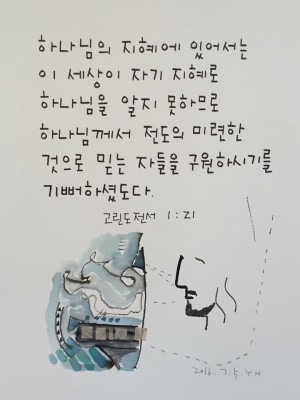 하나님의 지혜에 있어서는
이 세상이 자기 지혜로
하나님을 알지 못하므로
하나님께서 전도의 미련한
것으로 믿는 자들을 구원하시기를
기뻐하셨도다.
고린도전서 1:21
2016.7.4.